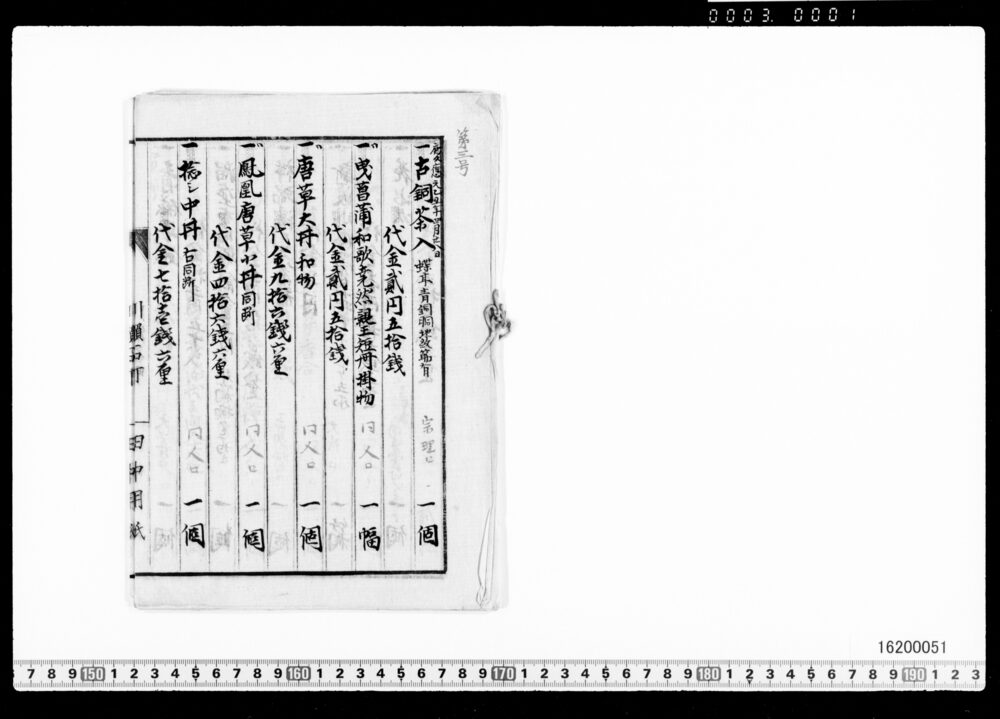 0003. 0001
第三号
一古銅茶入 蝶耳青銅 宗理 一個
代金貳円五拾銭
一曳菖蒲和歌尭然親王短冊掛物 同人 一幅
代金貳円五拾銭
一唐草大丼 和物 同人 一個
代金九拾六錢六厘
一鳳凰唐草小丼 同断 同人 一個
代金四拾六錢六厘
一捻シ中丼 右同断 同人 一個
代金七拾壱錢六厘
田中用紙
16200051
7 8 9 150 1 2 3 4 5 6 7 8 9 160 1 2 3 4 5 6 7 8 9 170 1 2 3 4 5 6 7 8 9 180 1 2 3 4 5 6 7 8 9 190 1 2 3